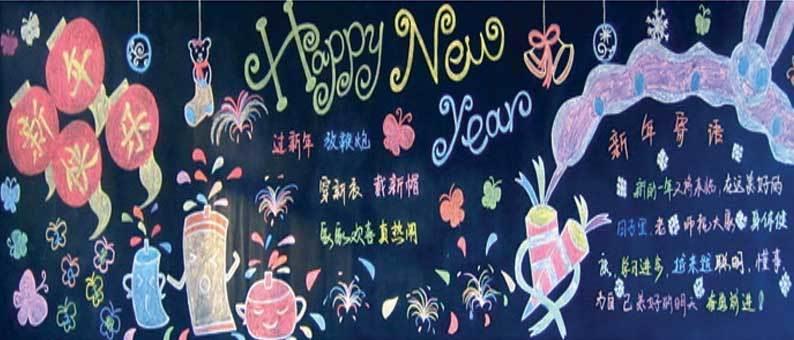 Happy New
Year
新年快乐
过新年 放鞭炮
穿新衣 戴新帽
家家欢喜真热闹
新年寄语
新的一年又将来临,在这美好的
日子里,老师祝大家身体健
康,学习进步,越来越聪明,懂事,
为自己美好的明天 奋勇前进!